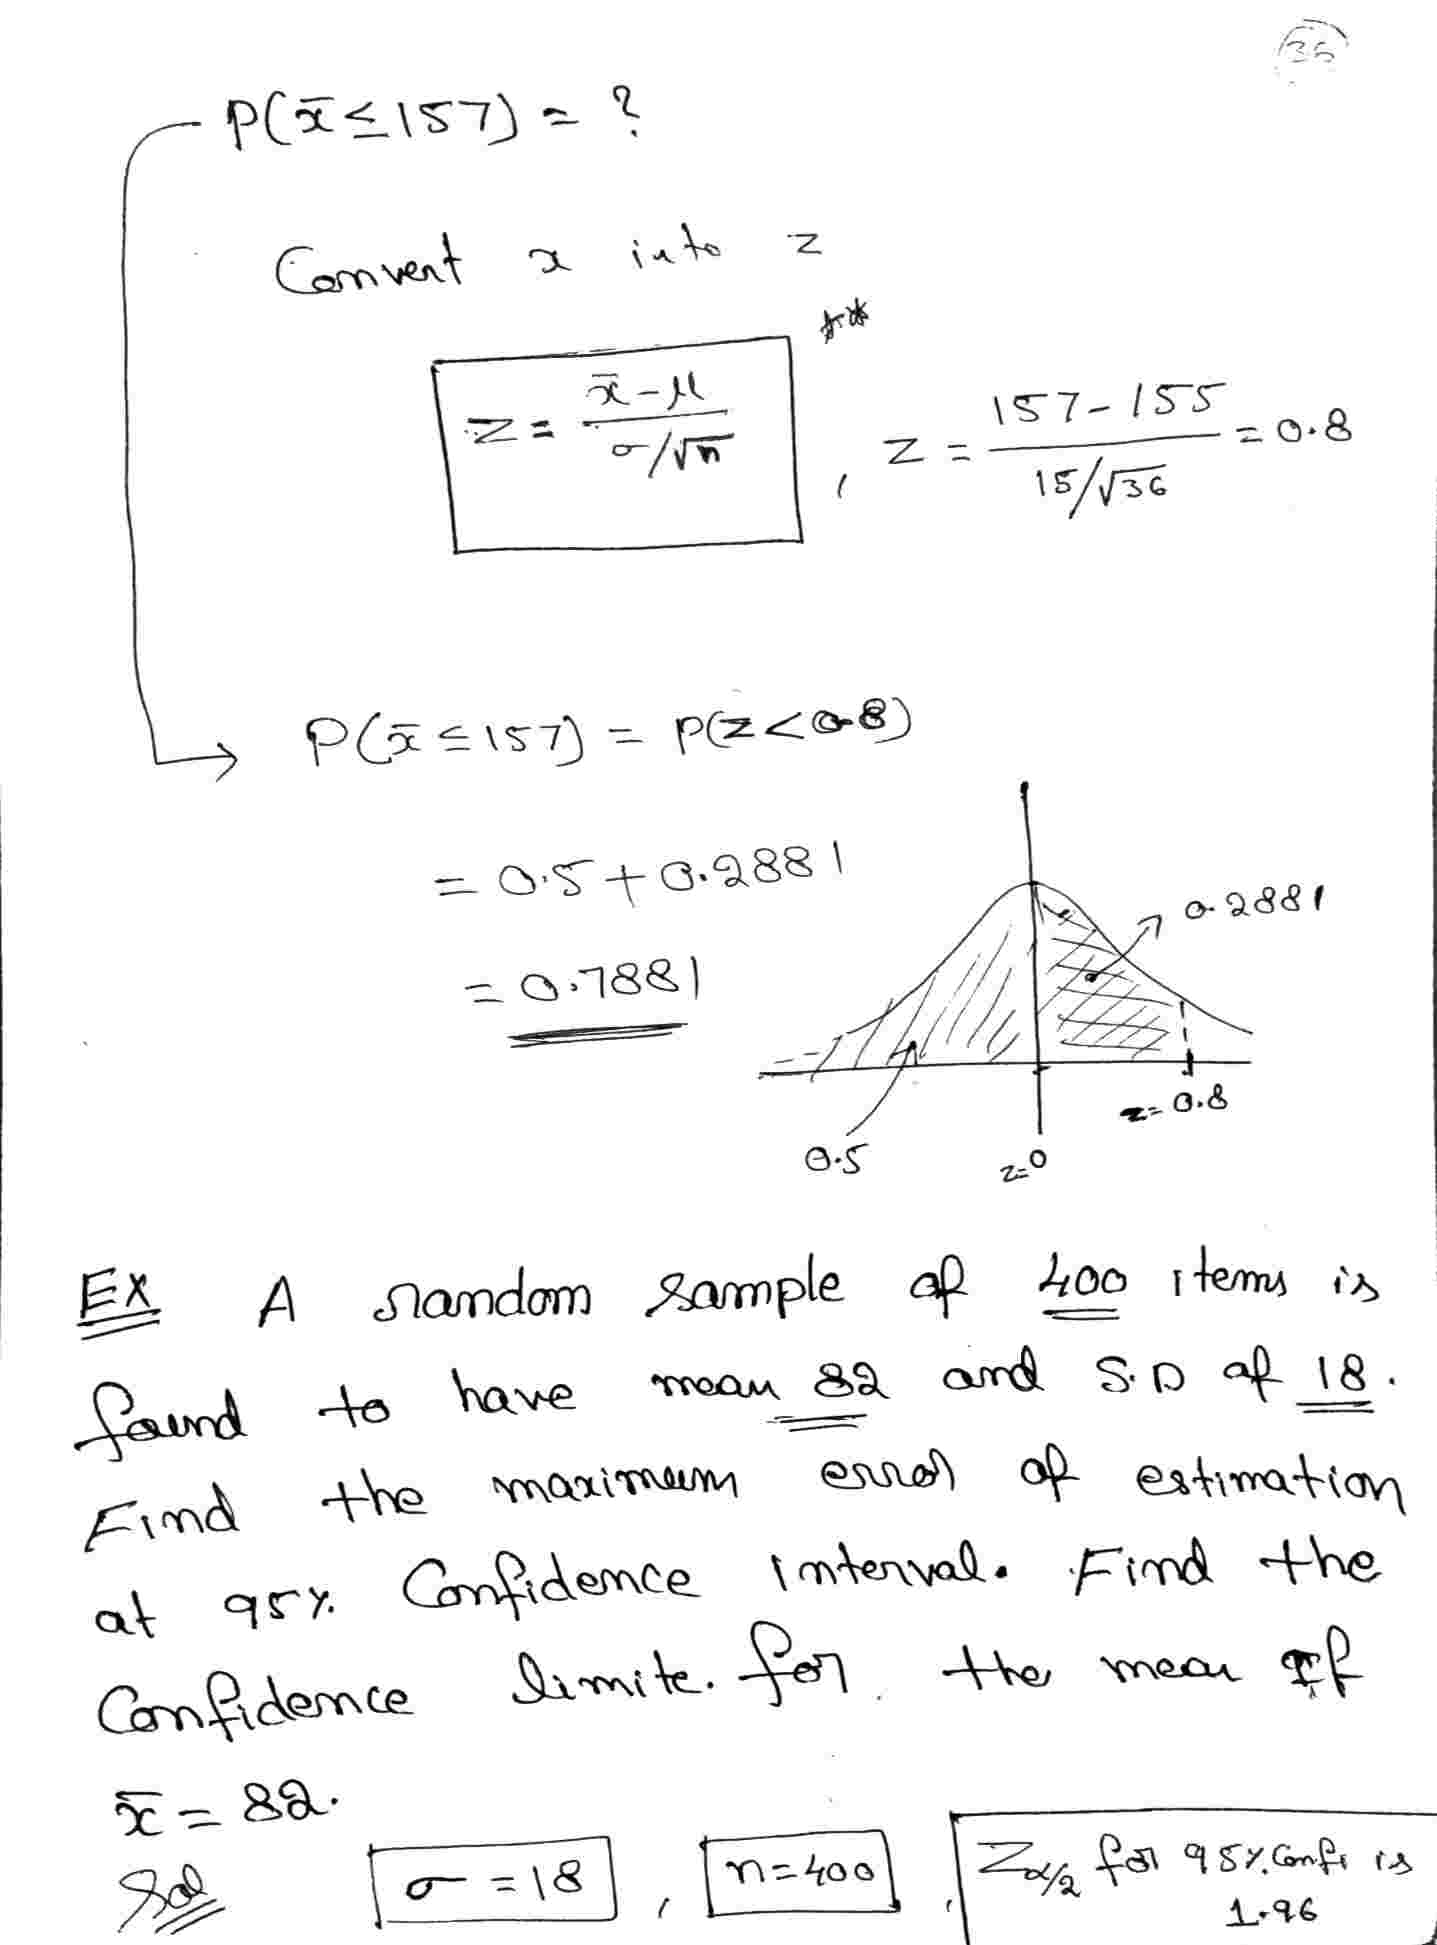 36
P(x̄ ≤ 157) = ?
Convert x into z
**
Z = (x̄ - μ) / (σ/√n) , Z = (157 - 155) / (15/√36) = 0.8
P(x̄ ≤ 157) = P(Z < 0.8)
= 0.5 + 0.2881
0.2881
= 0.7881
z = 0.8
0.5
z=0
EX A random sample of 400 items is
found to have mean 82 and S.D of 18.
Find the maximum error of estimation
at 95% Confidence interval. Find the
Confidence limite. for the mean If
x̄ = 82.
Sol σ = 18 , n = 400 , Zα/2 for 95% Confi is
1.96